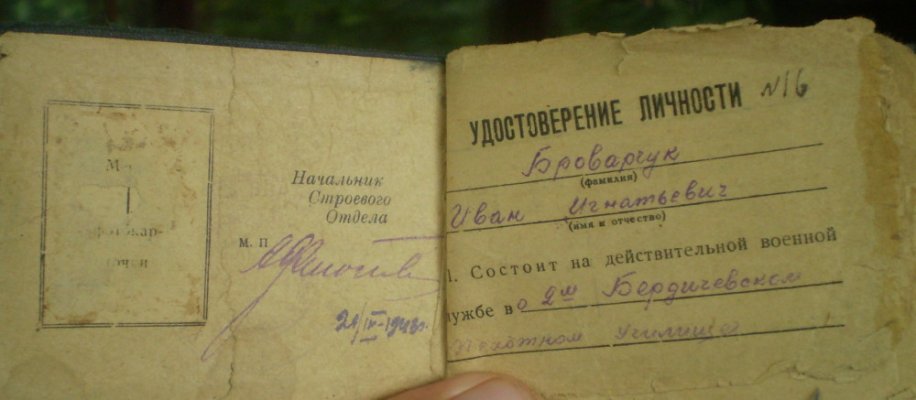 Начальник
Строевого
Отдела
М. П
УДОСТОВЕРЕНИЕ ЛИЧНОСТИ №16
Броварчук
(фамилия)
Иван Игнатьевич
(имя и отчество)
1. Состоит на действительной военной
службе во 2м Бердичевском
Пехотном Училище